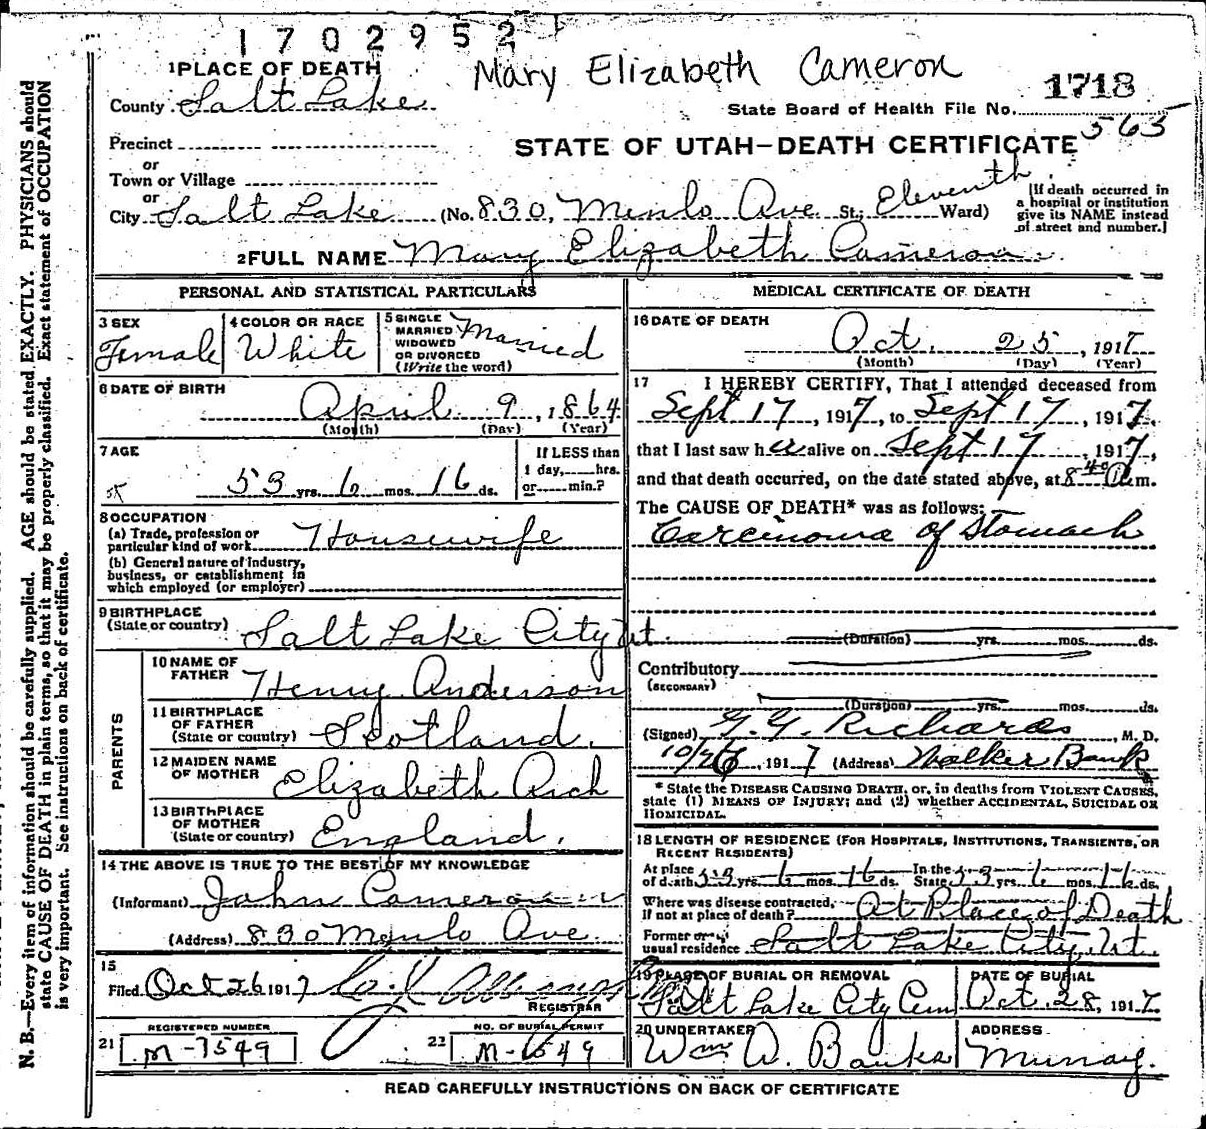 1702952
Mary Elizabeth Cameron
1 PLACE OF DEATH
1718
County Salt Lake
State Board of Health File No.
565
Precinct
STATE OF UTAH—DEATH CERTIFICATE
or
Town or Village
or
City Salt Lake (No. 830, Menlo Ave St., Eleventh Ward)
[If death occurred in a hospital or institution give its NAME instead of street and number.]
2 FULL NAME Mary Elizabeth Cameron
PERSONAL AND STATISTICAL PARTICULARS
3 SEX
Female
4 COLOR OR RACE
White
5 SINGLE MARRIED WIDOWED OR DIVORCED (Write the word)
Married
6 DATE OF BIRTH
April 9, 1864
(Month) (Day) (Year)
7 AGE
53 yrs. 6 mos. 16 ds.
If LESS than 1 day, hrs. or min.?
8 OCCUPATION
(a) Trade, profession or particular kind of work Housewife
(b) General nature of Industry, business, or establishment in which employed (or employer)
9 BIRTHPLACE
(State or country) Salt Lake City Ut.
PARENTS
10 NAME OF FATHER Henry Anderson
11 BIRTHPLACE OF FATHER (State or country) Scotland.
12 MAIDEN NAME OF MOTHER Elizabeth Rich
13 BIRTHPLACE OF MOTHER (State or country) England.
14 THE ABOVE IS TRUE TO THE BEST OF MY KNOWLEDGE
(Informant) John Cameron
(Address) 830 Menlo Ave.
15
Filed Oct 26 1917
REGISTRAR
REGISTERED NUMBER
21 M-1549
NO. OF BURIAL PERMIT
22 M-1549
MEDICAL CERTIFICATE OF DEATH
16 DATE OF DEATH
Oct. 25, 1917
(Month) (Day) (Year)
17 I HEREBY CERTIFY, That I attended deceased from
Sept 17, 1917, to Sept 17, 1917,
that I last saw her alive on Sept 17, 1917,
and that death occurred, on the date stated above, at 8 40 a.m.
The CAUSE OF DEATH* was as follows:
Carcinoma of Stomach
(Duration) yrs. mos. ds.
Contributory
(SECONDARY)
(Duration) yrs. mos. ds.
(Signed) G. G. Richards, M. D.
10/26, 1917 (Address) Walker Bank
* State the DISEASE CAUSING DEATH, or, in deaths from VIOLENT CAUSES, state (1) MEANS OF INJURY; and (2) whether ACCIDENTAL, SUICIDAL OR HOMICIDAL.
18 LENGTH OF RESIDENCE (FOR HOSPITALS, INSTITUTIONS, TRANSIENTS, OR RECENT RESIDENTS)
At place of death 53 yrs. 6 mos. 16 ds. In the State 53 yrs. 6 mos. 16 ds.
Where was disease contracted, If not at place of death? At Place of Death
Former or usual residence Salt Lake City, Ut.
19 PLACE OF BURIAL OR REMOVAL
Salt Lake City Cem
DATE OF BURIAL
Oct. 28, 1917
20 UNDERTAKER
Wm A. Banks
ADDRESS
Murray.
READ CAREFULLY INSTRUCTIONS ON BACK OF CERTIFICATE
N. B.—Every item of information should be carefully supplied. AGE should be stated EXACTLY. PHYSICIANS should
state CAUSE OF DEATH in plain terms, so that it may be properly classified. Exact statement of OCCUPATION
is very important. See instructions on back of certificate.